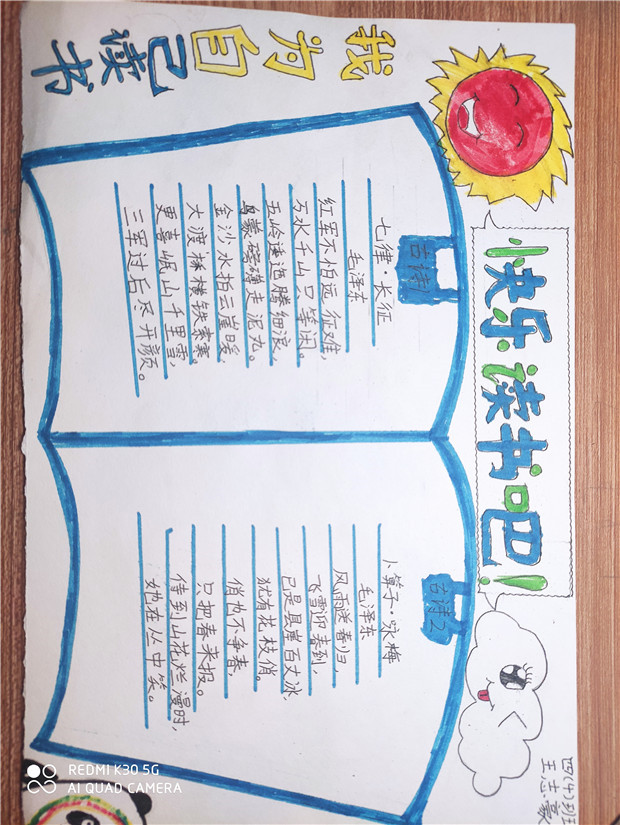 快乐读书吧!
我为自己读书
古诗1
七律·长征
毛泽东
红军不怕远征难,
万水千山只等闲。
五岭逶迤腾细浪,
乌蒙磅礴走泥丸。
金沙水拍云崖暖,
大渡桥横铁索寒。
更喜岷山千里雪,
三军过后尽开颜。
古诗2
卜算子·咏梅
毛泽东
风雨送春归,
飞雪迎春到,
已是悬崖百丈冰,
犹有花枝俏。
俏也不争春,
只把春来报。
待到山花烂漫时,
她在丛中笑。
REDMI K30 5G
AI QUAD CAMERA